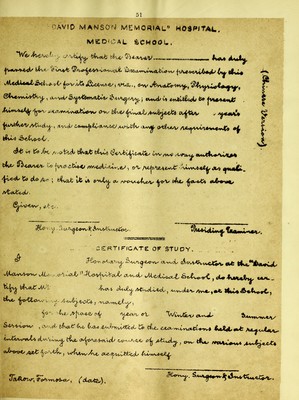 51
"DAVID MANSON MEMORIAL" HOSPITAL.
MEDICAL SCHOOL.
We hereby certify that the Bearer has duly
passed the First Professional Examination prescribed by this
Medical School for its Licence, viz., on Anatomy, Physiology,
Chemistry, and Systematic Surgery; and is entitled to present
himself for examination on the final subjects after years
further study, and compliance with any other requirements of
this School.
It is to be noted that this Certificate in no way authorizes
the Bearer to practise medicine, or represent himself as quali-
fied to do so; that it is only a voucher for the facts above
stated.
Given, etc.
(Chinese Version)
Hony. Surgeon & Instructor. Presiding Examiner.
CERTIFICATE OF STUDY.
I Honorary Surgeon and Instructor at the "David
Manson Memorial" Hospital and Medical School, do hereby cer-
tify that Mr has duly studied, under me, at this School,
the following subjects, namely,
for the space of year or Winter and Summer
Session, and that he has submitted to the examinations held at regular
intervals during the aforesaid course of study, on the various subjects
above set forth, when he acquitted himself
Hony. Surgeon & Instructor.
Takow, Formosa, (date).